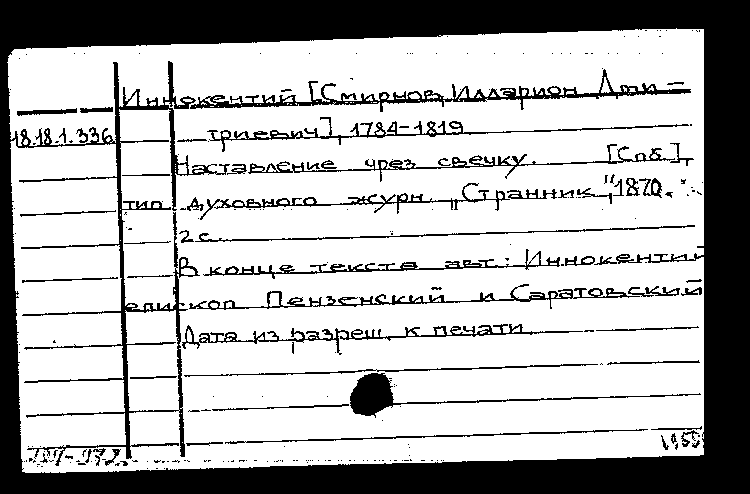 Иннокентий [Смирнов, Илларион Дми-
18.18.1.336 триевич], 1784-1819
Наставление чрез свечку. [Спб.],
тип. духовного журн. „Странник", 1870.
2 с.
В конце текста авт.: Иннокентий
епископ Пензенский и Саратовский
Дата из разреш. к печати.